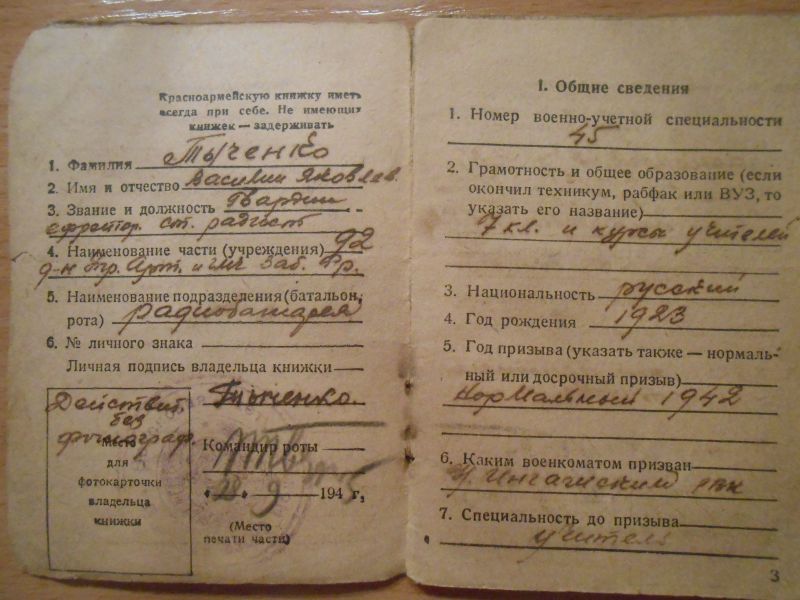 Красноармейскую книжку иметь
всегда при себе. Не имеющих
книжек — задерживать
1. Фамилия Тыченко
2. Имя и отчество Василий Яковлев.
3. Звание и должность Гвардии
ефрейтор. ст. радист
4. Наименование части (учреждения) 92
д-н Арт. Заб. Фр.
5. Наименование подразделения (батальон,
рота) радиобатарея
6. № личного знака
Личная подпись владельца книжки
Тыченко.
Действит.
без
фотограф.
Место
для
фотокарточки
владельца
книжки
Командир роты
„28“ 9 194 г,
(Место
печати части)
I. Общие сведения
1. Номер военно-учетной специальности
45
2. Грамотность и общее образование (если
окончил техникум, рабфак или ВУЗ, то
указать его название)
7 кл. и курсы учителей
3. Национальность русский
4. Год рождения 1923
5. Год призыва (указать также — нормаль-
ный или досрочный призыв)
Нормальный 1942
6. Каким военкоматом призван
Н. Ингашским рвк
7. Специальность до призыва
учитель
3